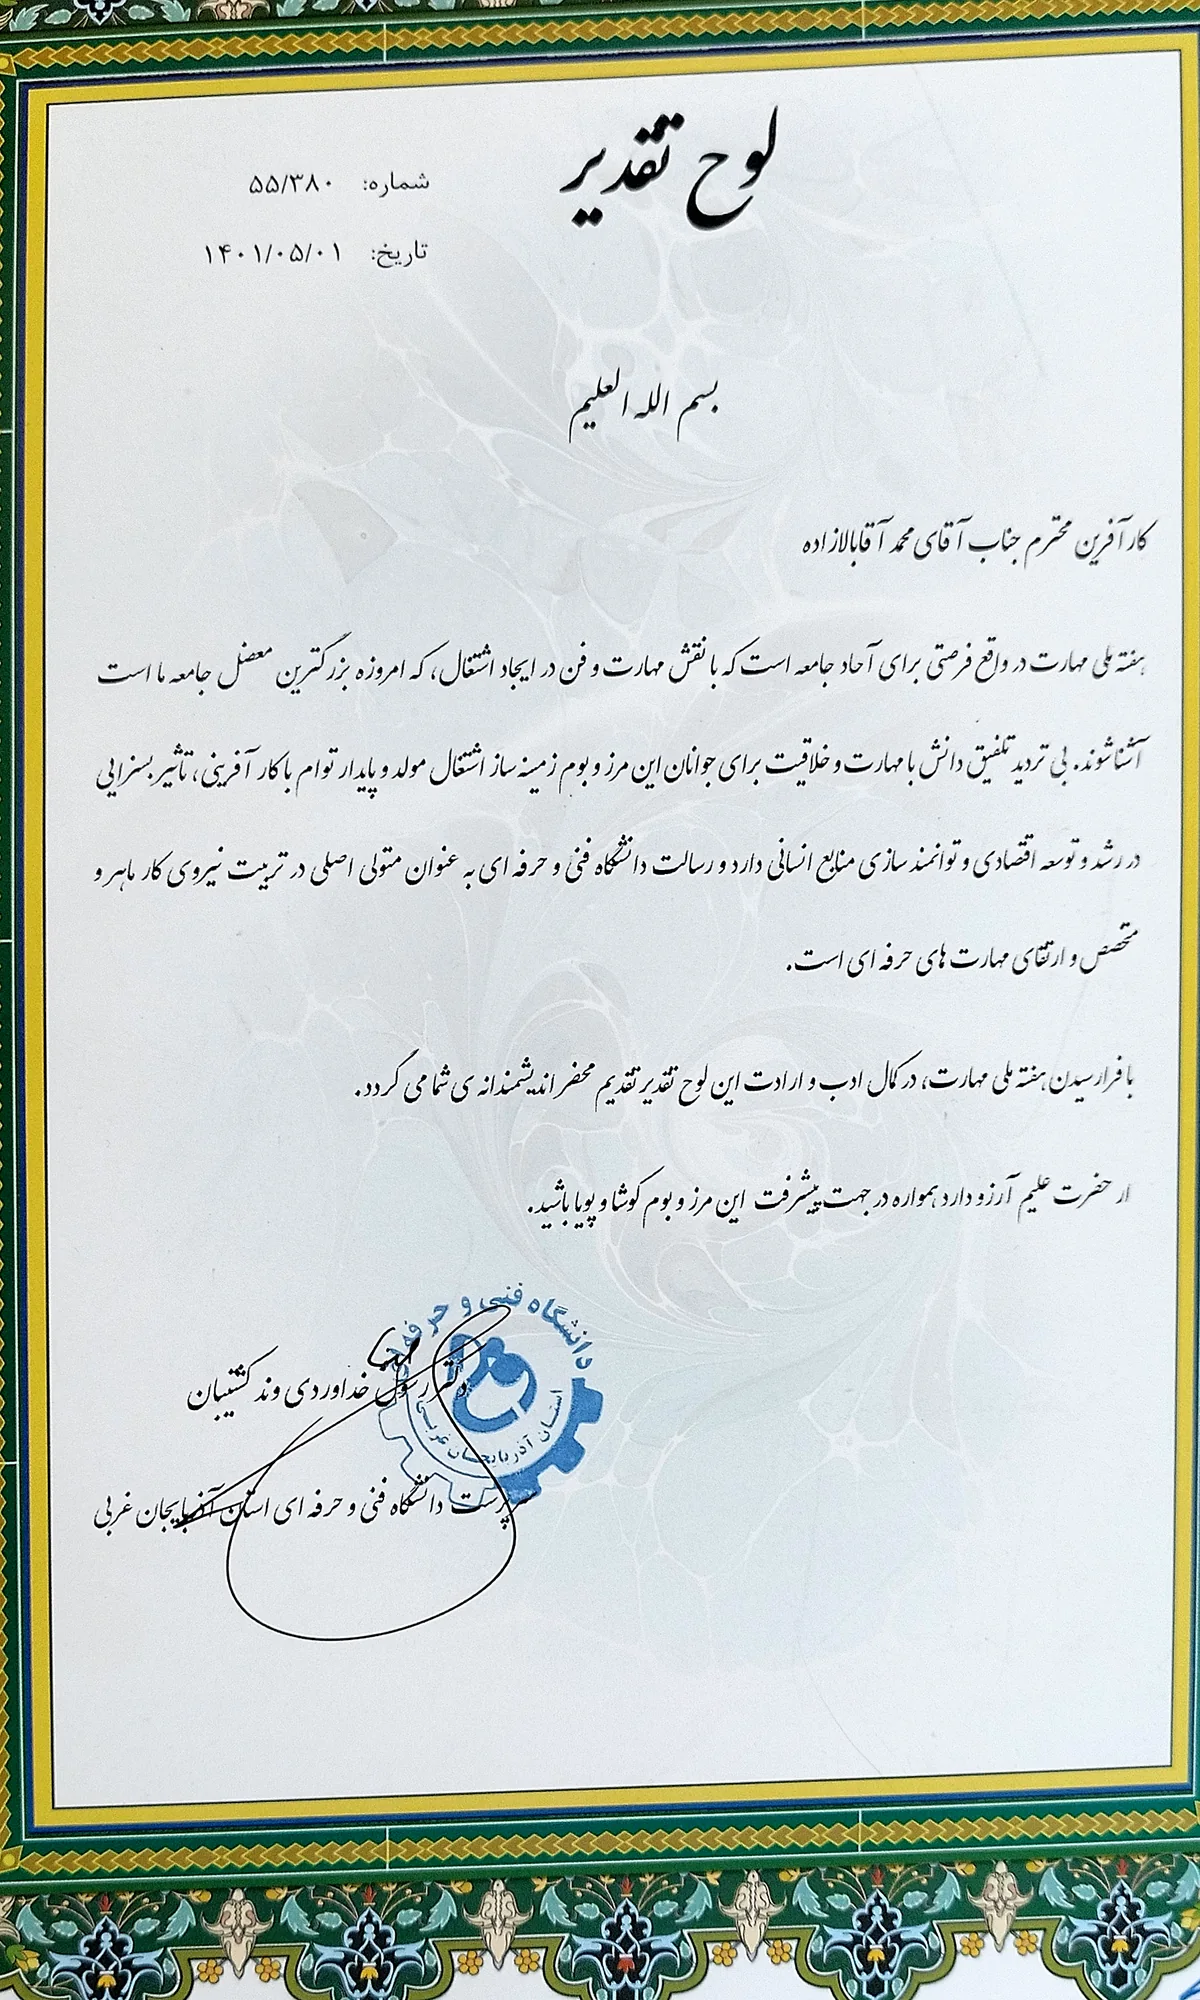 لوح تقدیر
شماره: ۵۵/۳۸۰
تاریخ: ۱۴۰۱/۰۵/۰۱
بسم الله العلیم
کارآفرین محترم جناب آقای محمد آقابالازاده
هفته ملی مهارت در واقع فرصتی برای آحاد جامعه است که با نقش مهارت و فن در ایجاد اشتغال، که امروزه بزرگترین معضل جامعه ما است
آشنا شوند. بی تردید تلفیق دانش با مهارت و خلاقیت برای جوانان این مرز و بوم زمینه ساز اشتغال مولد و پایدار توام با کارآفرینی، تأثیر بسزایی
در رشد و توسعه اقتصادی و توانمند سازی منابع انسانی دارد و رسالت دانشگاه فنی و حرفه ای به عنوان متولی اصلی در تربیت نیروی کار ماهر و
متخصص و ارتقای مهارت های حرفه ای است.
با فرا رسیدن هفته ملی مهارت، در کمال ادب و ارادت این لوح تقدیر تقدیم محضر اندیشمندانه ی شما می گردد.
از حضرت علیم آرزو دارد همواره در جهت پیشرفت این مرز و بوم کوشا و پویا باشید.
دانشگاه فنی و حرفه ای
استان آذربایجان غربی
دکتر رسول خداوردی وند کشتیبان
سرپرست دانشگاه فنی و حرفه ای استان آذربایجان غربی